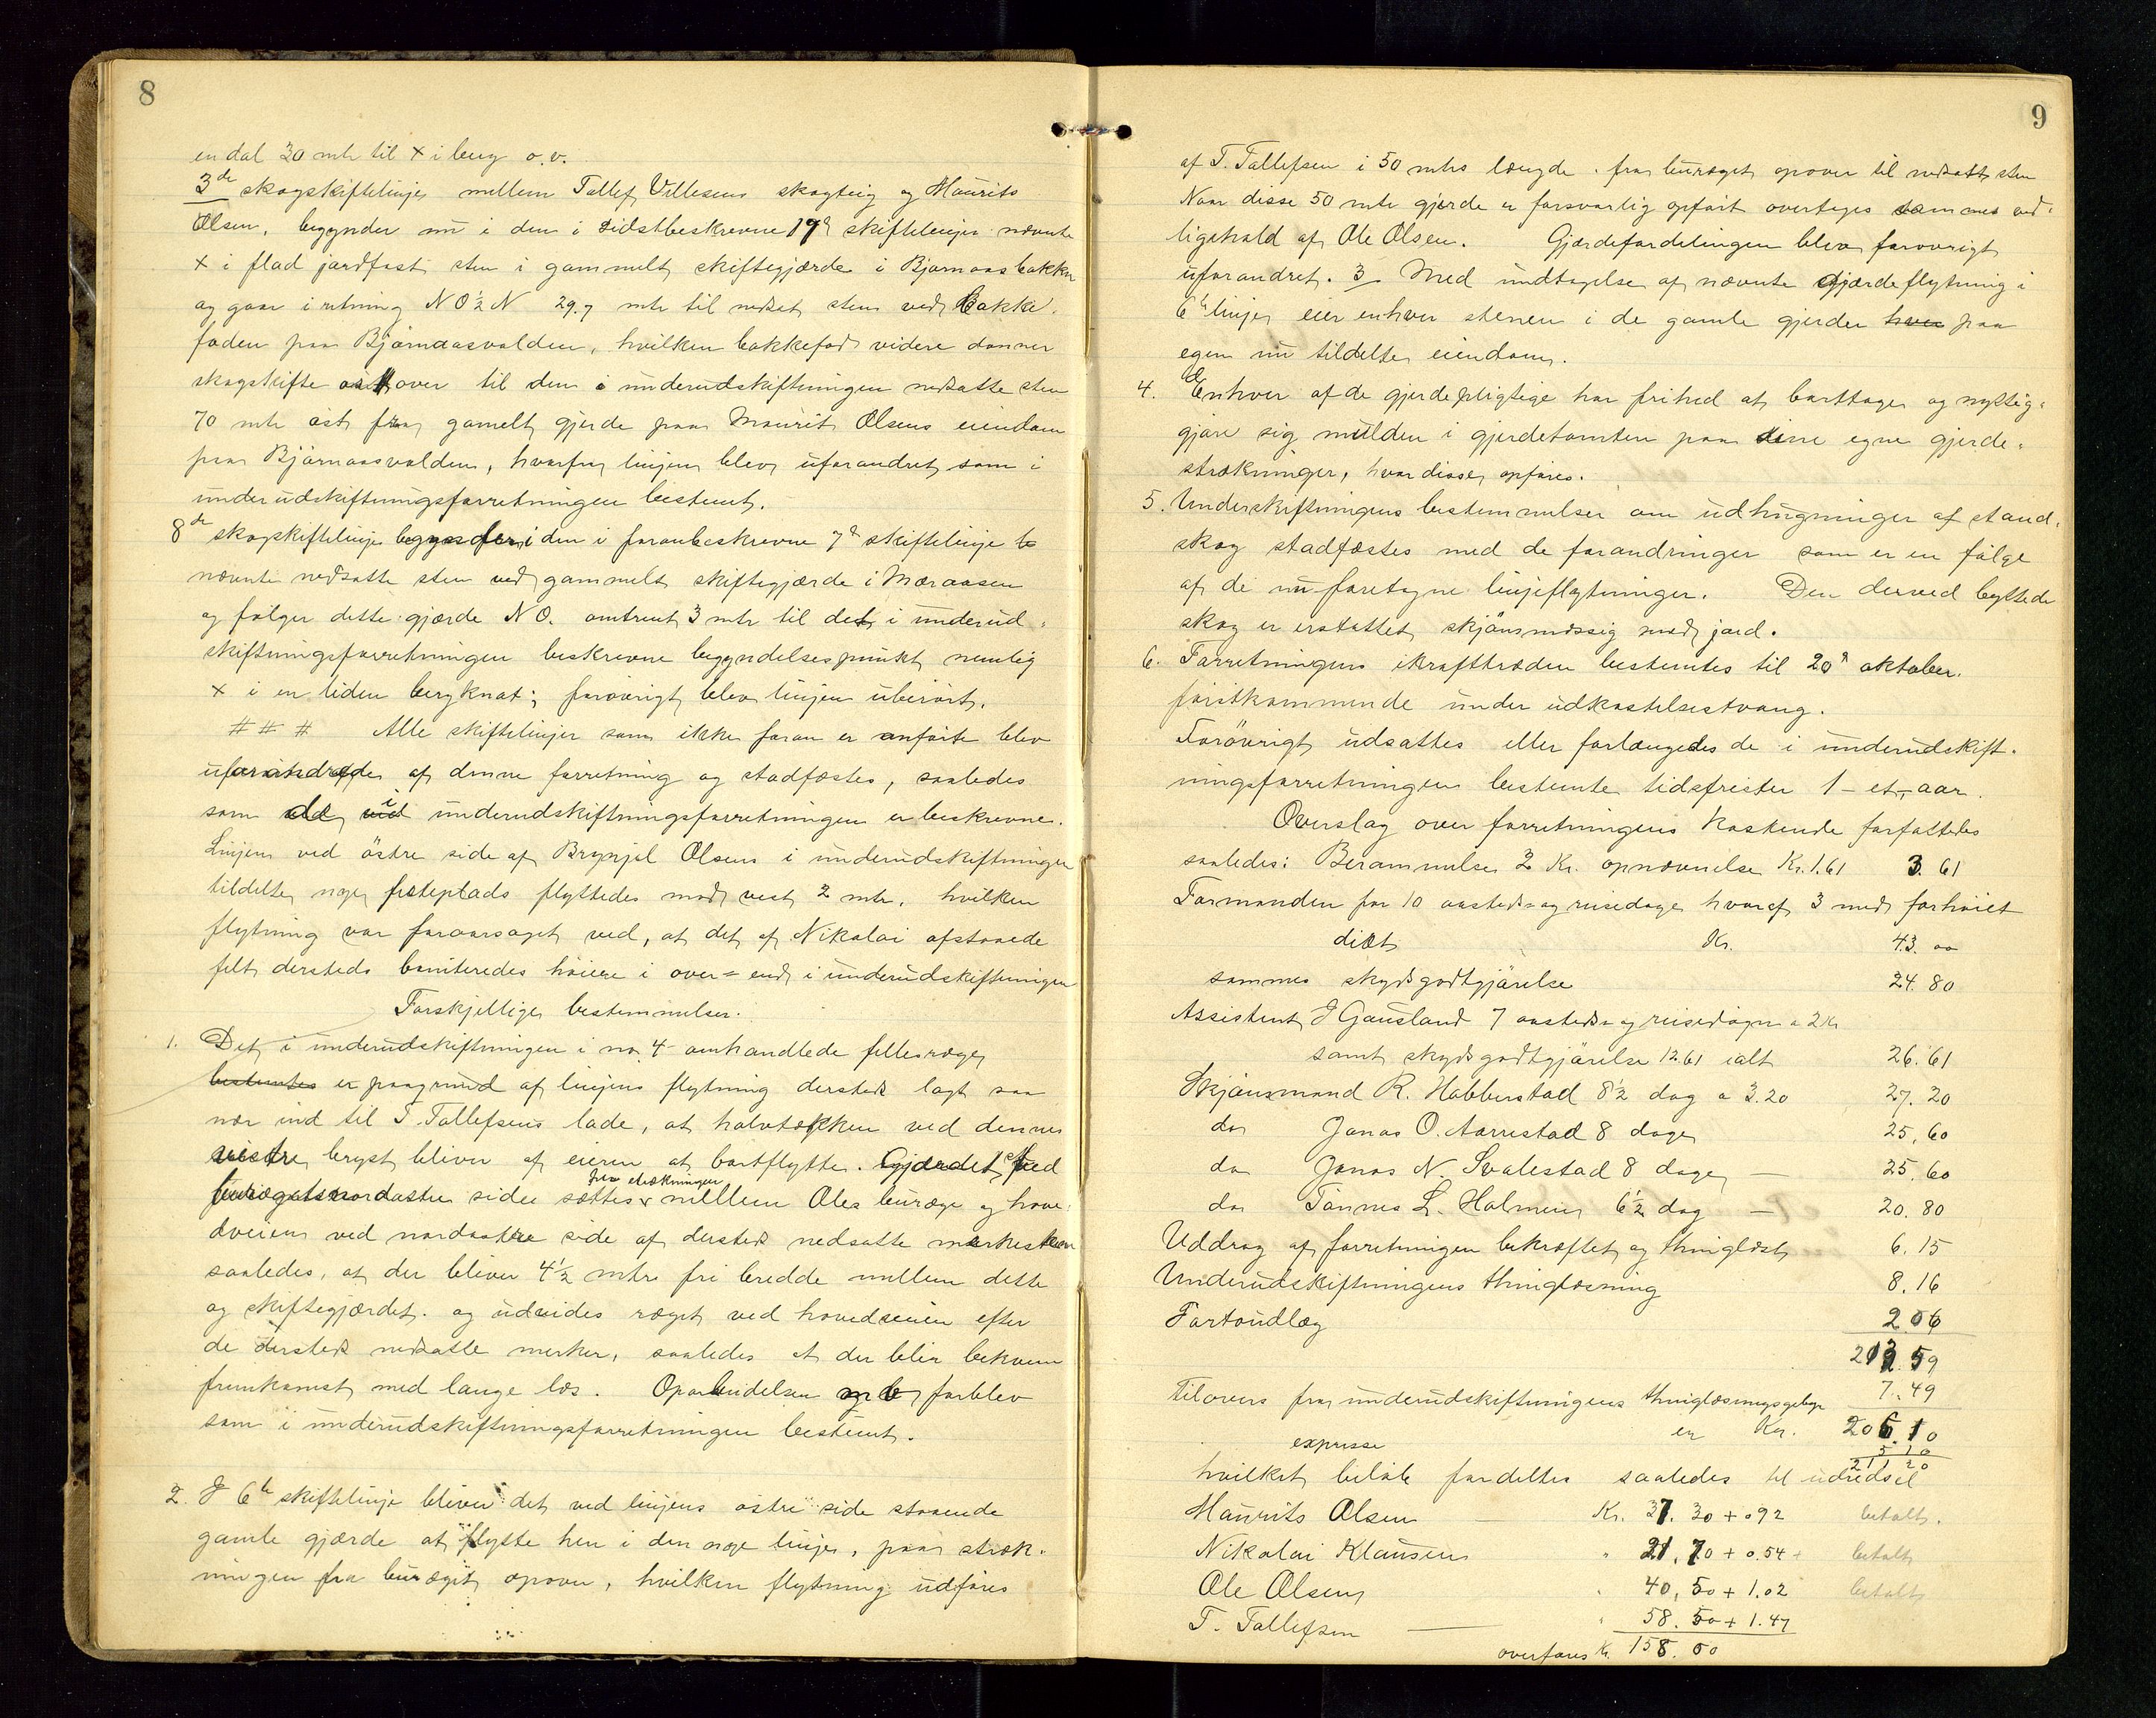 8
en dal 30 mtr til × i berg o.v.
3de skogskiftelinje mellem Tallef Villesens skogteig og Maurits
Olsen, begynder nu i den i sidstbeskrevne skiftelinjen nævnte
× i flad jordfast sten i gammelt skiftegjærde i Bjørnaasbakken
og gaar i retning NO½N 29.7 mtr til nedsat sten ved bakke-
foden paa Bjørnaasvolden, hvilken bakkefod videre danner
skogskifte over til den i underudskiftningen nedsatte sten
70 mtr øst fra gamelt gjerde paa Maurits Olsens eiendom
paa Bjørnaasvolden, hvorfra linjen blev uforandret som i
underudskiftningsforretningen bestemt.
8de skogskiftelinje begynder i den i foranbeskrevne 7de skiftelinje
nævnte nedsatte sten ved gammelt skiftegjærde i Mæraasen
og følger dette gjærde NO. omtrent 3 mtr til det i underud-
skiftningsforretningen beskrevne begyndelsespunkt nemlig
× i en liden bergknat; forøvrigt blev linjen uberørt.
# # # Alle skiftelinjer som ikke foran er anført blev
uforandrede af denne forretning og stadfæstes, saaledes
som de i underudskiftningsforretningen er beskrevne.
Linjen ved östre side af Brynjel Olsens i underudskiftningen
tildelte nye fæteplads flyttedes mod vest 2 mtr. hvilken
flytning var foraarsaget ved, at det af Nikolai afstaaede
felt dersteds boniteredes höiere i over= end i underudskiftningen
Forskjellige bestemmelser.
1. Det i underudskiftningen i no. 4 omhandlede fellesræge
bestemtes er paagrund af linjens flytning dersteds lagt saa
nær ind til T. Tallefsens lade, at halvtækken ved dennes
vestre bryst bliver af eieren at bortflytte. Gjærdet ved
buræagets nordöstre side sættes paa strækningen mellem Oles buræge og hove-
dveien ved nordöstre side af dersteds nedsatte merkesten
saaledes, at der bliver 4½ mtr fri bredde mellem dette
og skiftegjærdet. og udvides ræget ved hovedveien efter
de dersteds nedsatte merker, saaledes at der blir bekvem
fremkomst med lange læs. Oparbeidelsen forblev
som i underudskiftningsforretningen bestemt.
2. I 6te skiftelinje bliver det ved linjens östre side staaende
gamle gjærde at flytte hen i den nye linje, paa stræk-
ningen fra buræget opover, hvilken flytning udføres
9
af T. Tallefsen i 50 mtrs længde fra buræget opover til nedsatt sten
Naar disse 50 mtr gjerde er forsvarlig opført overtages sammes ved-
ligehold af Ole Olsen. Gjærdefordelingen blev forøvrigt
uforandret. 3 Med undtagelse af nævnte gjærdeflytning i
6te linje eier enhver stenen i de gamle gjerder hver paa
egen nu tildelte eiendom.
4. Enhver af de gjerdepligtige har frihed at borttage og nyttig-
gjøre sig mulden i gjerdetomten paa sine egne gjerde-
strækninger, hvor disse opføres.
5. Underskiftningens bestemmelser om udhugninger af stand-
skog stadfæstes med de forandringer som er en følge
af de nu foretagne linjeflytninger. Den derved byttede
skog er erstattet skjønsmæssig med jord.
6. Forretningens ikrafttræden bestemtes til 20de oktober
førstkommende under udkastelsestvang.
Forøvrigt udsattes eller forlængedes de i underudskift-
ningsforretningen bestemte tidsfrister 1 - et, aar.
Overslag over forretningens kostende forfattedes
saaledes: Berammelse 2 Kr. opnævnelse Kr. 1.61 3.61
Formanden for 10 aasteds- og reisedage hvoraf 3 med forhöiet
diæt Kr. 43.00
sammes skydsgodtgjørelse 24.80
Assistent J Gausland 7 aasteds- og reisedage a 2 Kr
samt skydsgodtgjørelse 12.61 ialt 26.61
Skjønsmand R. Hobberstad 8½ dag a 3.20 27.20
do Jonas O. Aarrestad 8 dage 25.60
do Jonas N. Svalestad 8 dage — 25.60
do Tønnes L. Holmen 6½ dag — 20.80
Uddrag af forretningen bekræftet og thinglæst 6.15
Underudskiftningens thinglæsning 8.16
Fortöudlæg 2.06
213.59
Tilovers fra underudskiftningens thinglæsningsgebyr 7.49
er Kr. 206.10
expresse 5 10
211 20
hvilket beløb fordeltes saaledes til udredsel
Maurits Olsen — Kr. 37.30 + 092 betalt.
Nikolai Klausen " 21.70 + 0.54 betalt
Ole Olsen " 40,50 + 1.02 betalt
T. Tallefsen — " 58.50 + 1.47
overføres Kr. 158.00